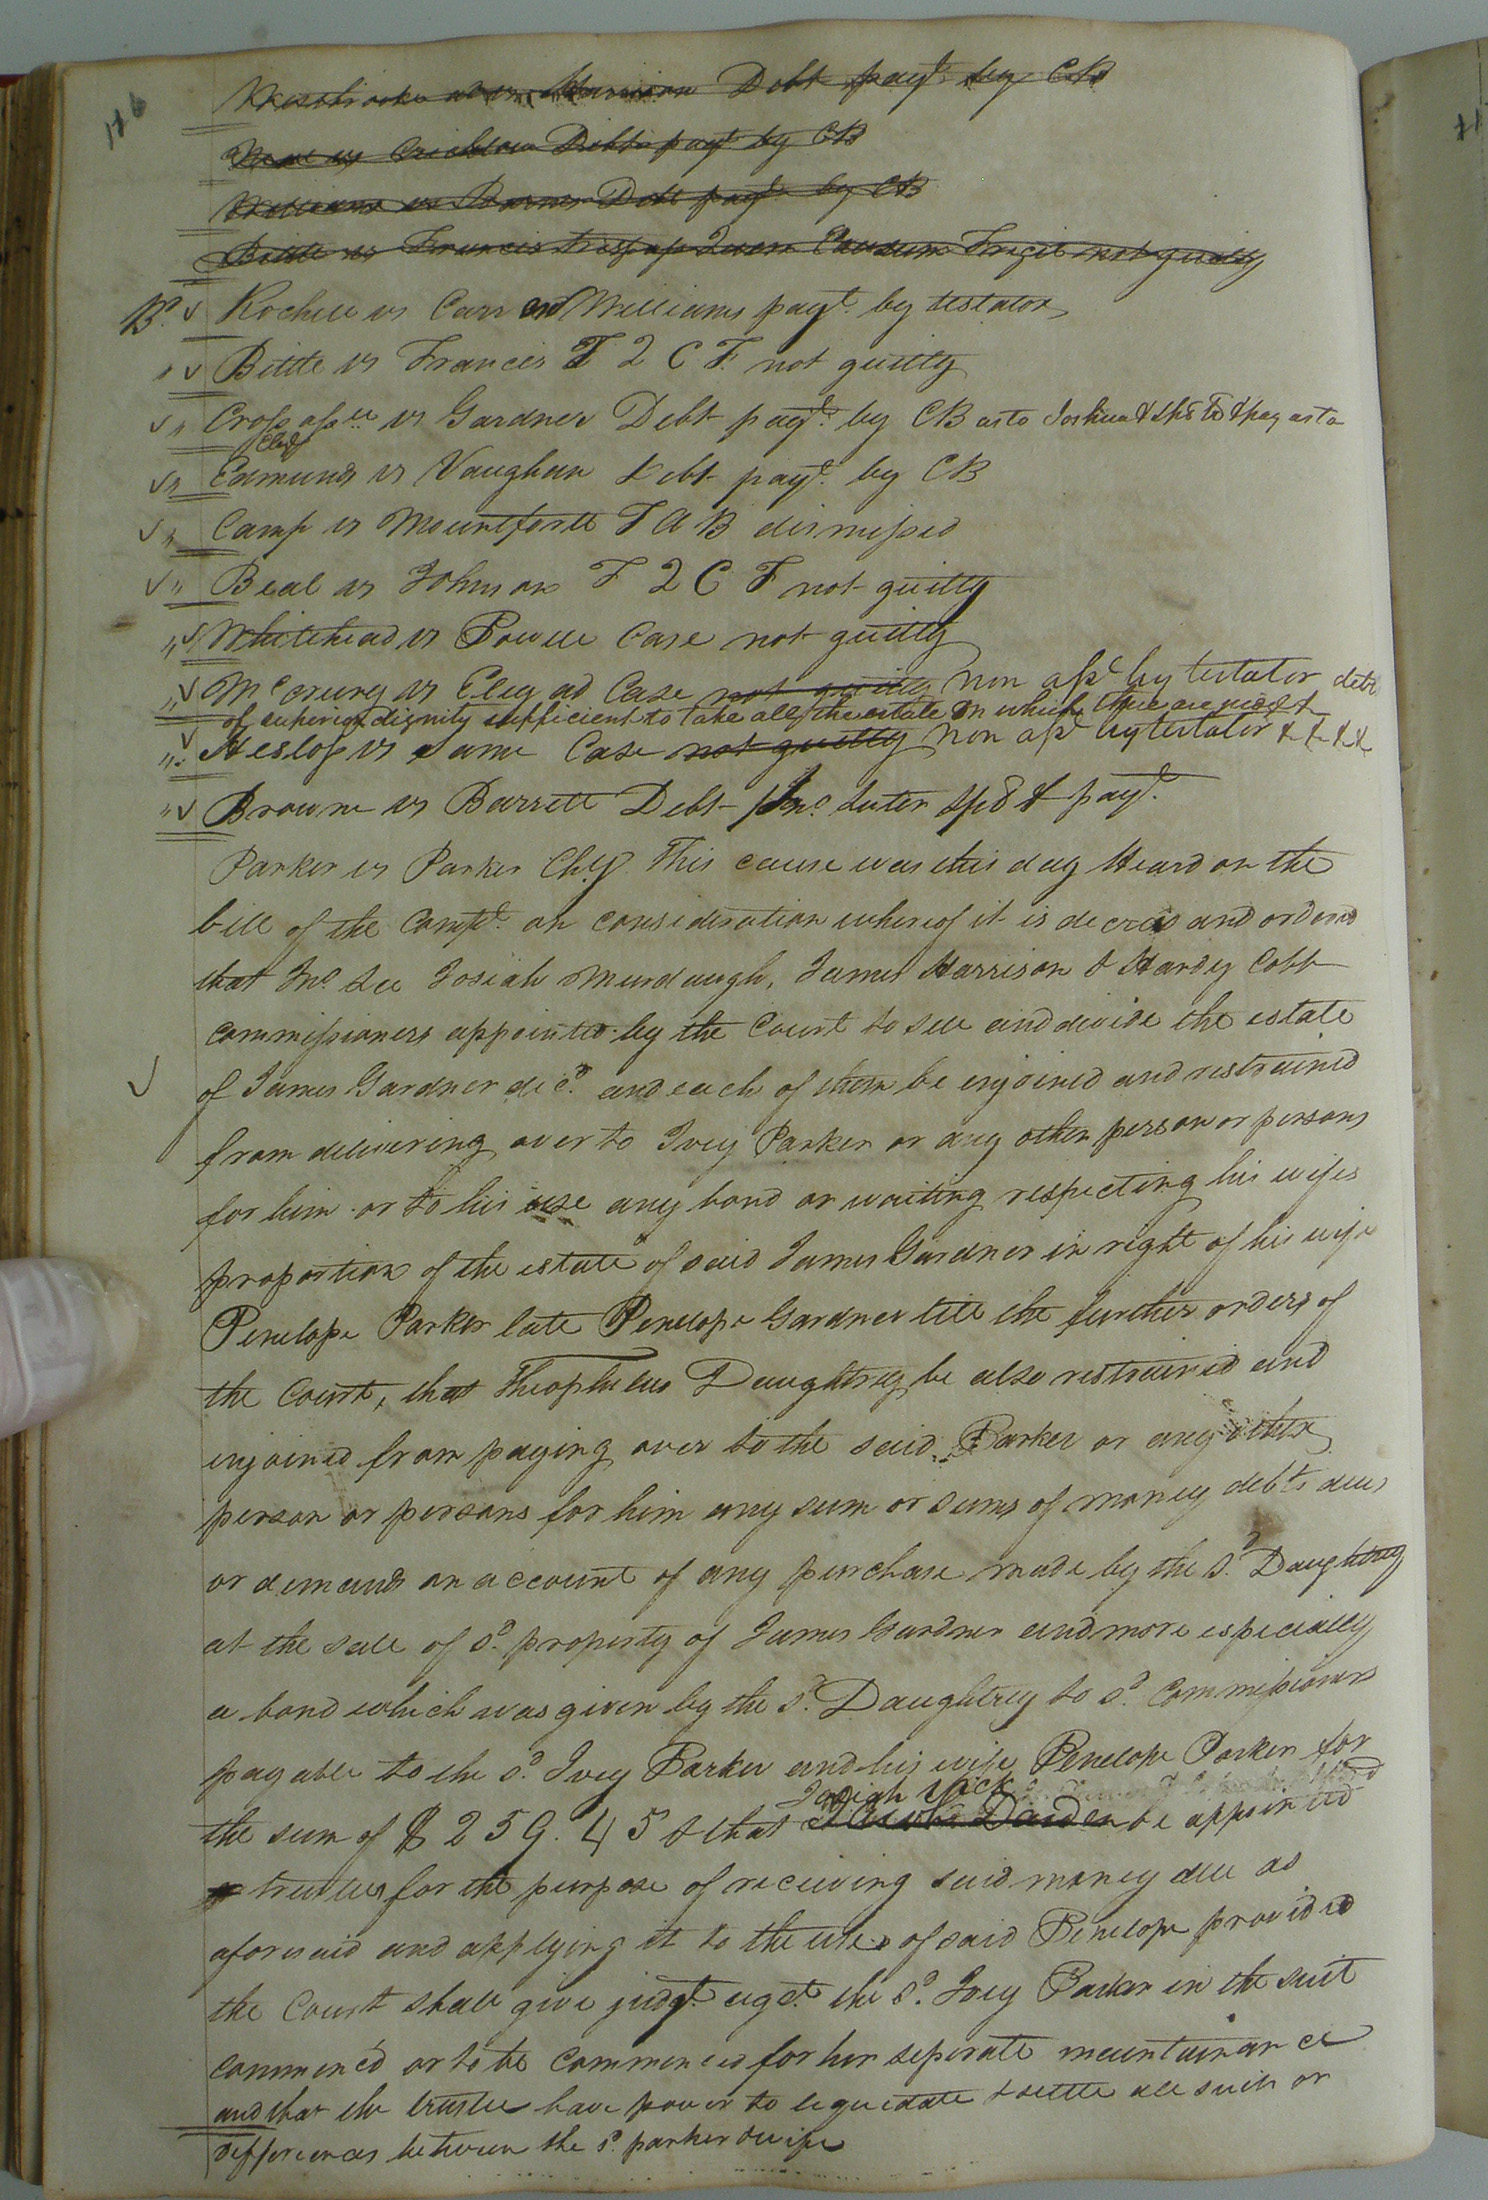 116
Westbrook vs Harrison Debt payt. by CB
vs Crichlow Debt payt by CB
Williams vs Barnes Debt payt. by CB
Bittle vs Francis Tresp Quare Clausum Fregit not guilty
Rochell vs Carr and Williams payt. by testator
Bittle vs Francis T 2 C F. not guilty
Cross assee vs Gardner Debt payt. by CB as to Joshua & & pay as to
Edmunds vs Vaughan Debt payt. by CB
Camp vs Mountfortt T A B dismissed
Beal vs Johnson T 2 C F not guilty
Whitehead vs Powell Case not guilty
McCrurey vs Eley ad Case not guilty non asst by testator debts
of superior dignity sufficient to take all the estate on which there are &
Heslop vs same Case not guilty non asst by testator & & & &
Browne vs Barrett Debt Jno. Luter & payt.
Parker vs Parker Chy. This cause was this day Heard on the
bill of the Complt. on consideration whereof it is decreed and ordered
that Jno. Lee Josiah Murdaugh, James Harrison & Hardy Cobb
commissioners appointed by the Court to sell and divide the estate
of James Gardner decd. and each of them be enjoined and restrained
from delivering over to Ivey Parker or any other person or persons
for him or to his use any bond or waiting respecting his wifes
proportion of the estate of said James Gardner in right of his wife
Penelope Parker late Penelope Gardner till the further orders of
the Court, that Theophilus Daughtrey be also restrained and
enjoined from paying over to the said Parker or any other
person or persons for him any sum or sums of money debts dues
or demands on account of any purchase made by the sd. Daughtrey
at the sale of sd. property of James Gardner and more especially
a bond which was given by the sd. Daughtrey to sd. Commissioners
payable to the sd. Ivey Parker and his wife Penelope Parker for
the sum of $259.45 & that Darden Josiah Vick be appointed
trustees for the purpose of receiving said money due as
aforesaid and applying it to the use of said Penelope provided
the Court shall give judgt. agst. the sd. Ivey Parker in the suit
commenc'd or to be commenced for her seperate maintainance
and that the trustee have power to liquidate & settle all suits or
differences between the sd. parker & wife